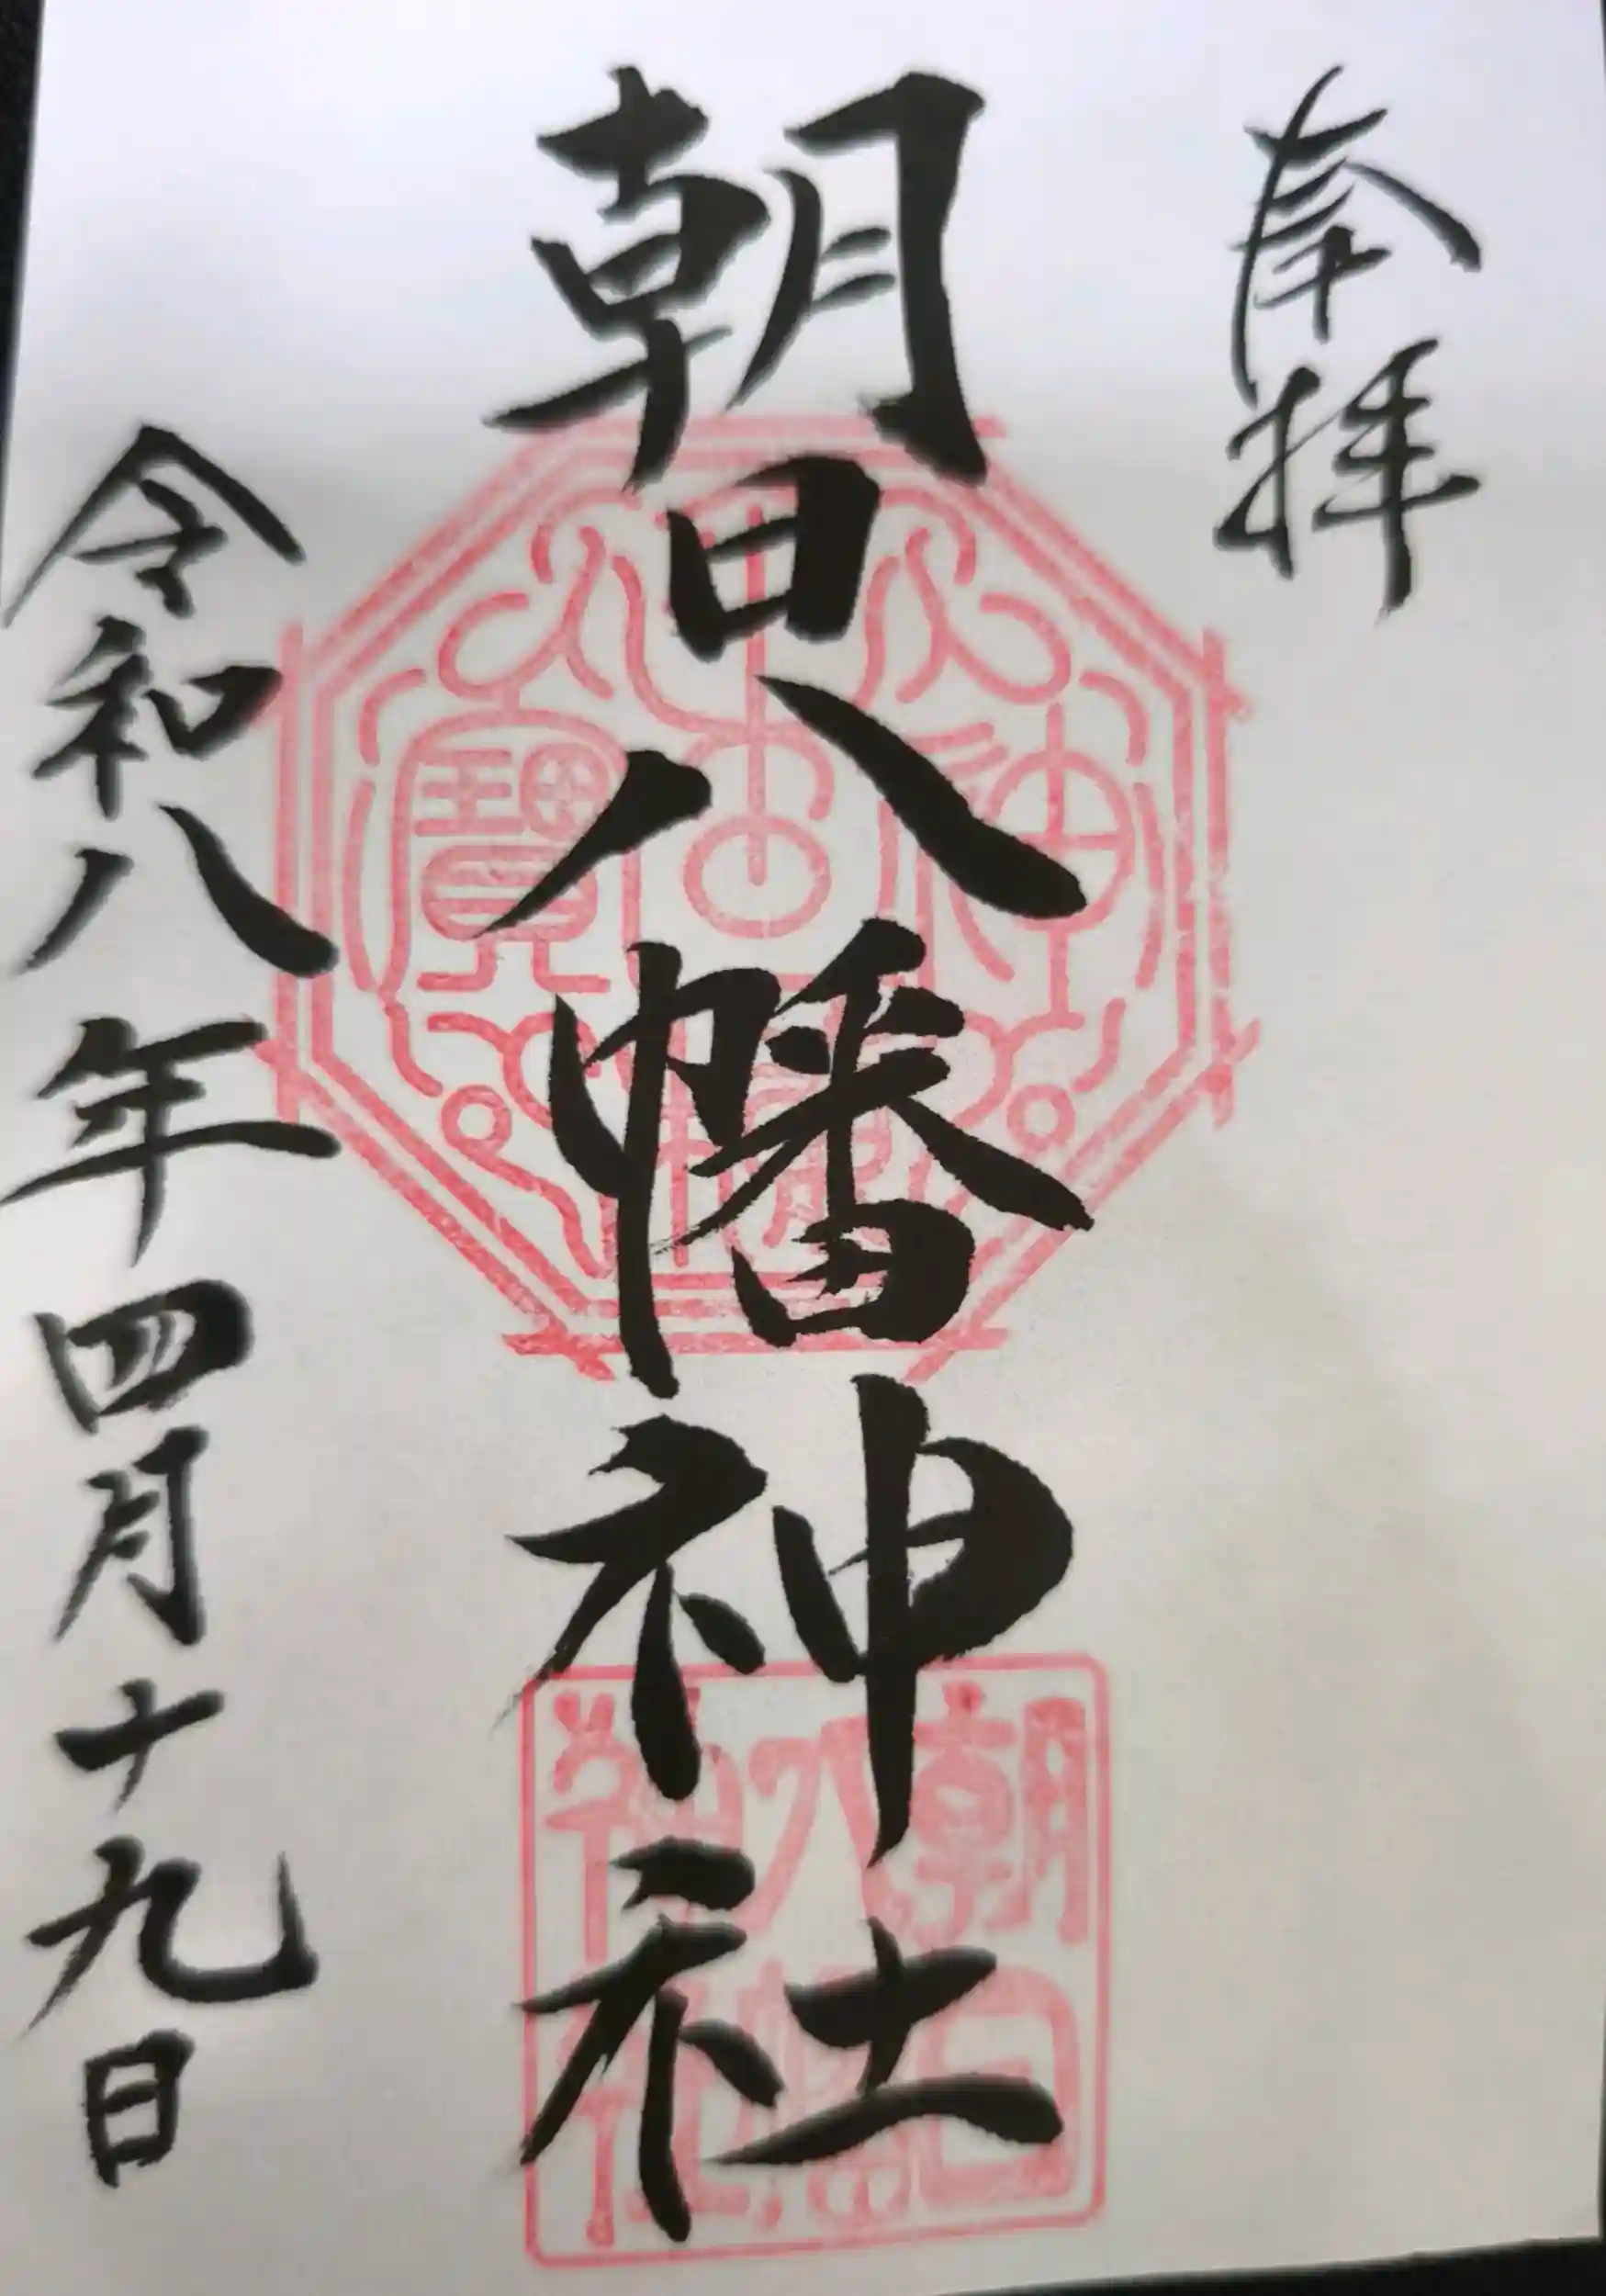 奉拝
朝日八幡神社
令和八年四月十九日
朝日
八幡
神社